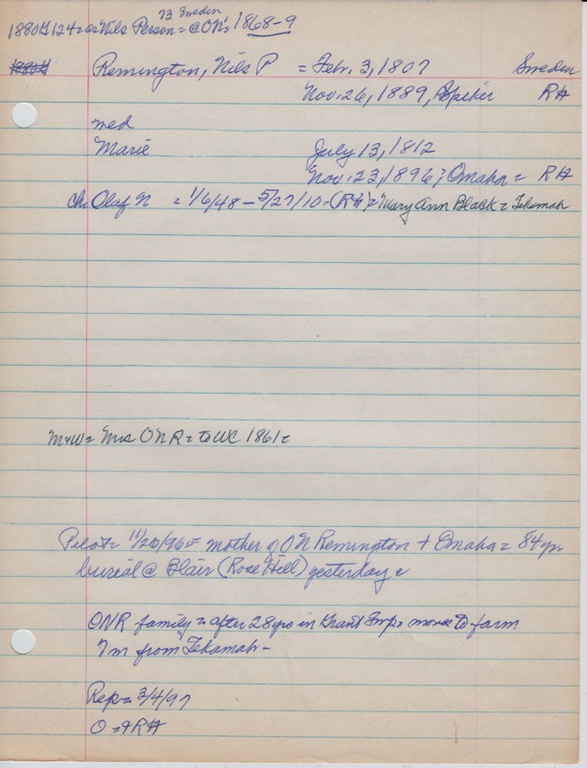 73 Sweden
1880 H 124 = as Nils Person = @ ON's 1868-9
1880H
Remington, Nils P = Febr. 3, 1807 Sweden
Nov. 26, 1889, Spiker RH
med
Marie July 13, 1812
Nov. 23, 1896; Omaha = RH
Ch. Olaf N = 1/6/48 - 5/27/10 - (RH) = Mary Ann Black = Tekamah
M+W = Mrs ONR = to WC 1861 =
Pilot = 11/26/96 = mother of ON Remington + Omaha = 84 yr.
burial @ Blair (Rose Hill) yesterday =
ONR family = after 28 yrs in Grant Twp = move to farm
7m from Tekamah -
Rep = 3/4/97
O = RH